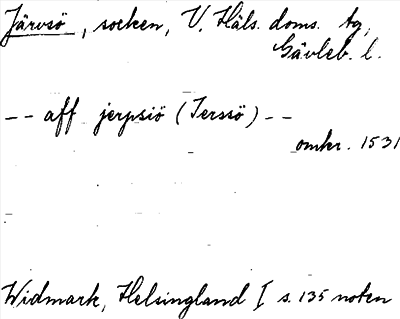 Järvsö, socken, V. Häls. doms. tg,
Gävleb. l.
-- aff jerpsiö (Jerssö) --
omkr. 1531
Widmark, Helsingland I s. 135 noten